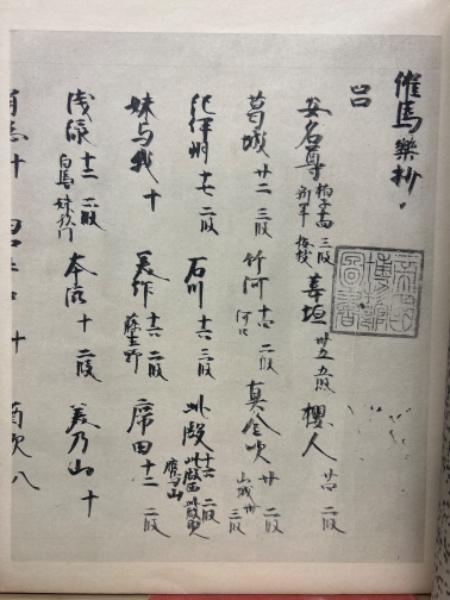 催馬樂抄
呂
安名尊 拍子 三段 新年 梅枝 葦垣 卅五 五段 櫻人 二段
葛城 廿二 三段 竹河 河口 二段 真金吹 廿 二段 山城 三段
紀伊州 十七 二段 石川 三段 此殿 十六 二段 此殿西 此殿奥 鷹山
妹与我 十 美作 二段 藤生野 席田 十二 二段
浅緑 十二 二段 白馬 妹門 本滋 十 二段 美乃山 十
十 十 酒飲 八